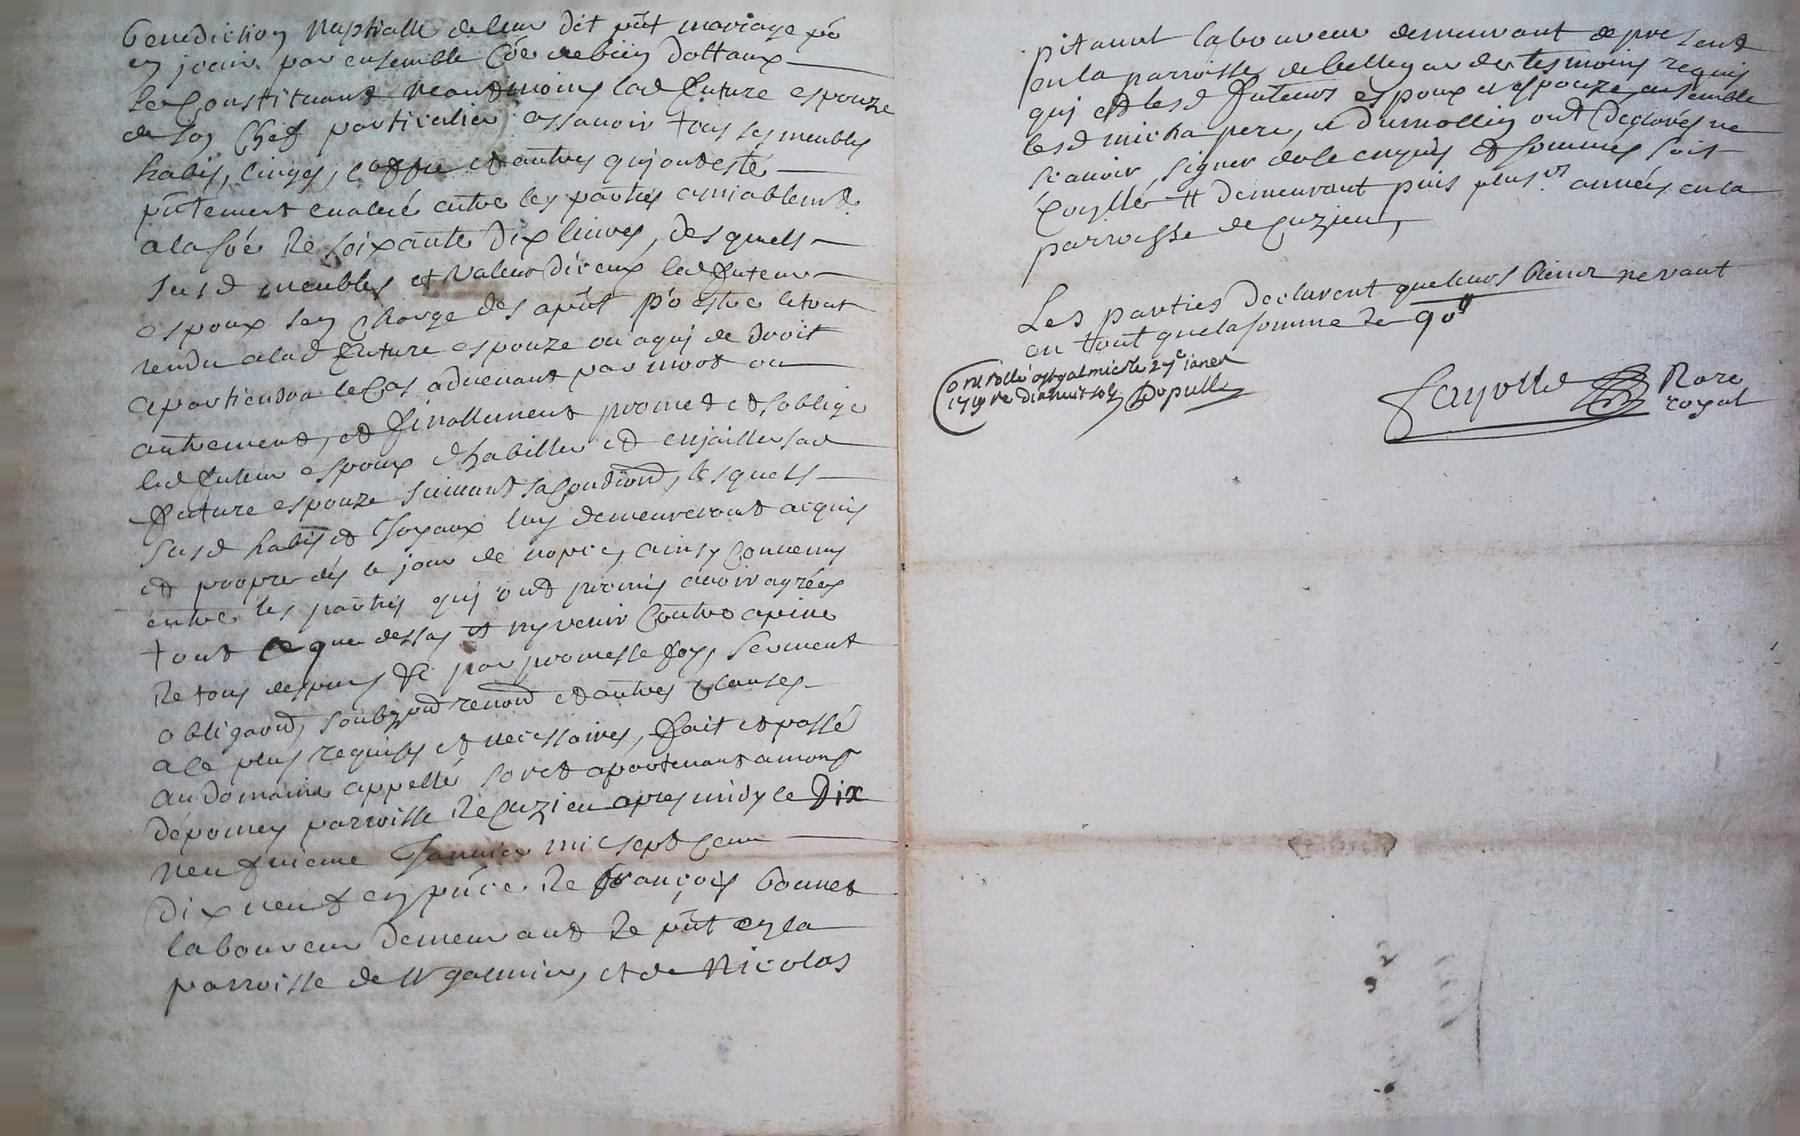 benediction nuptialle de leur dit pñt mariage po
en jouir par ensemble coe de bien dottaux
Se constituant neantmoins lad future espouze
de son chef particulier assavoir tous ses meubles
habis, linges, coffre et autres qui ont esté
pñtement evalué entre les parties amiablemt
a la soe de soixante dix livres, desquels
susd meubles et valeur diceux led futeur
espoux sen charge des apñt po estre letout
rendu alad future espouze ou a qui de droit
apartiendra le cas advenant par mort ou
autrement, et finallement promet et soblige
led futeur espoux dhabiller et enjailler sad
future espouze suivant sa condiond, lesquels
susd habis et joyaux luy demeureront acquis
et propre dés le jour de nopces, ainsy convenus
entre les parties qui ont promis avoir agrées
tout ce que dessus et ny venir contre a peine
de tous despens &c par promesse foy, serment
obligaond, soubzond renond et autres clauses
a ce plus requises et necessaires, fait et passé
au domaine appellé soret apartenant a mons
dépomey parroisse de cuzieu apres midy le Dix
neufvieme Janvier mil sept cent
dix neuf en pñce de françois bonnet
laboureur demeurant de pñt en la
parroisse de st galmier, et de Nicolas
pitaval laboureur demeurant de present
en la parroisse de bellegarde tesmoins requis
qui et lesd futeurs espoux et espouze ensemble
lesd micha pere, et dumollin ont declarés ne
scavoir signer de ce enquis et sommés soit
Coñllé # demeurant puis plusrs années en la
parroisse de cuzieu,
Les parties declarent que leurs biens ne vaut
en tout que la somme de 90ll
Controllé a st galmier le 27e janer
1719 re dixhuit sols Dopulle
fayolle Nore
royal